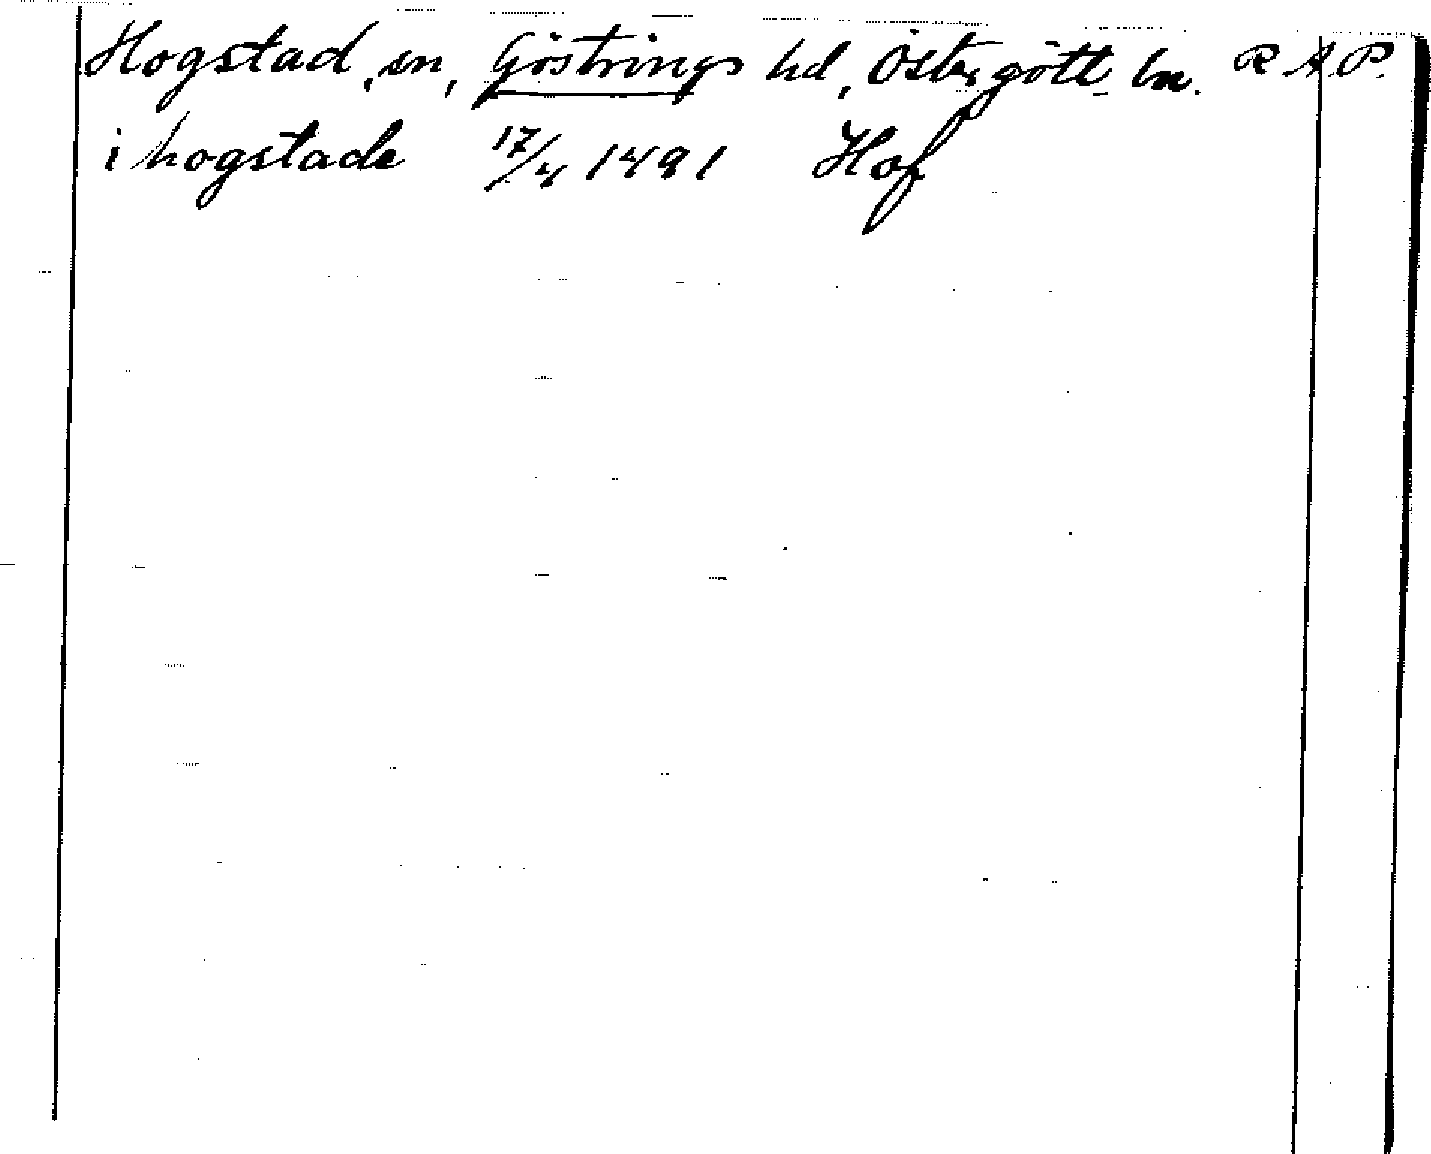 Hogstad, sn, Göstrings hd, Östergötl. ln. R A P.
i hogstade 17/4 1491 Hof